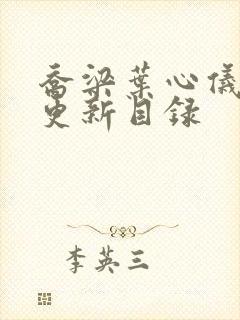 乔梁叶心仪
更新目录
李英三